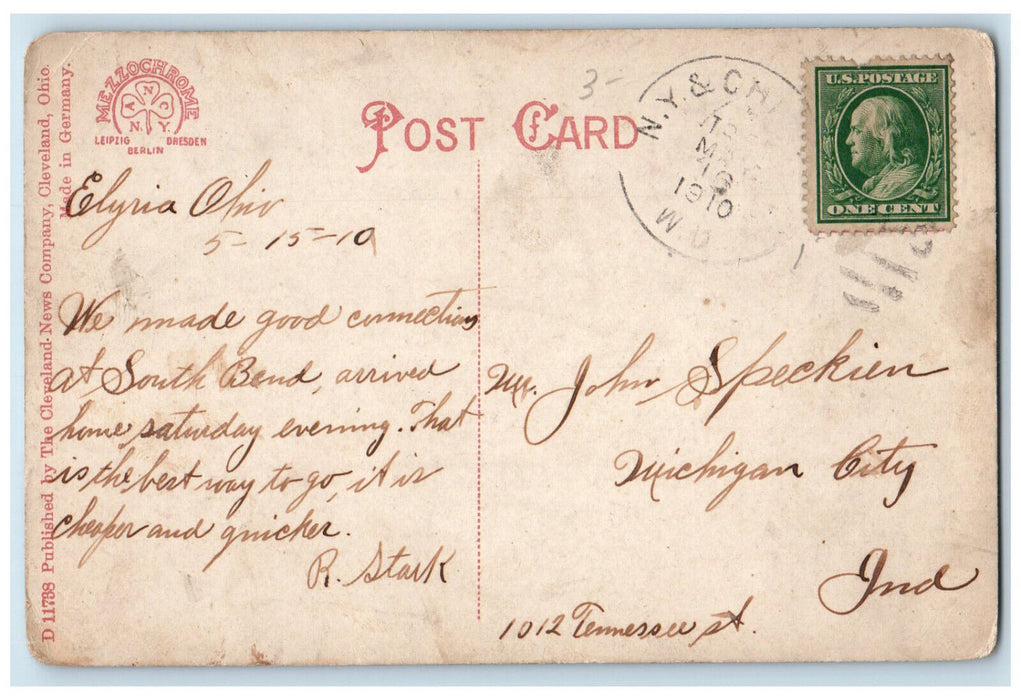 MEZZOCHROME
A N C
N. Y.
LEIPZIG DRESDEN
BERLIN
POST CARD
3-
N.Y. & CHI
MAY
16
1910
W D
U.S. POSTAGE
ONE CENT
Elyria Ohio
5-15-10
We made good connections
at South Bend, arrived
home saturday evening. That
is the best way to go, it is
cheaper and quicker.
R. Stark
Mr. John Speckien
Michigan City
Ind
1012 Tennessee st.
D 11738 Published by The Cleveland News Company, Cleveland, Ohio.
Made in Germany.